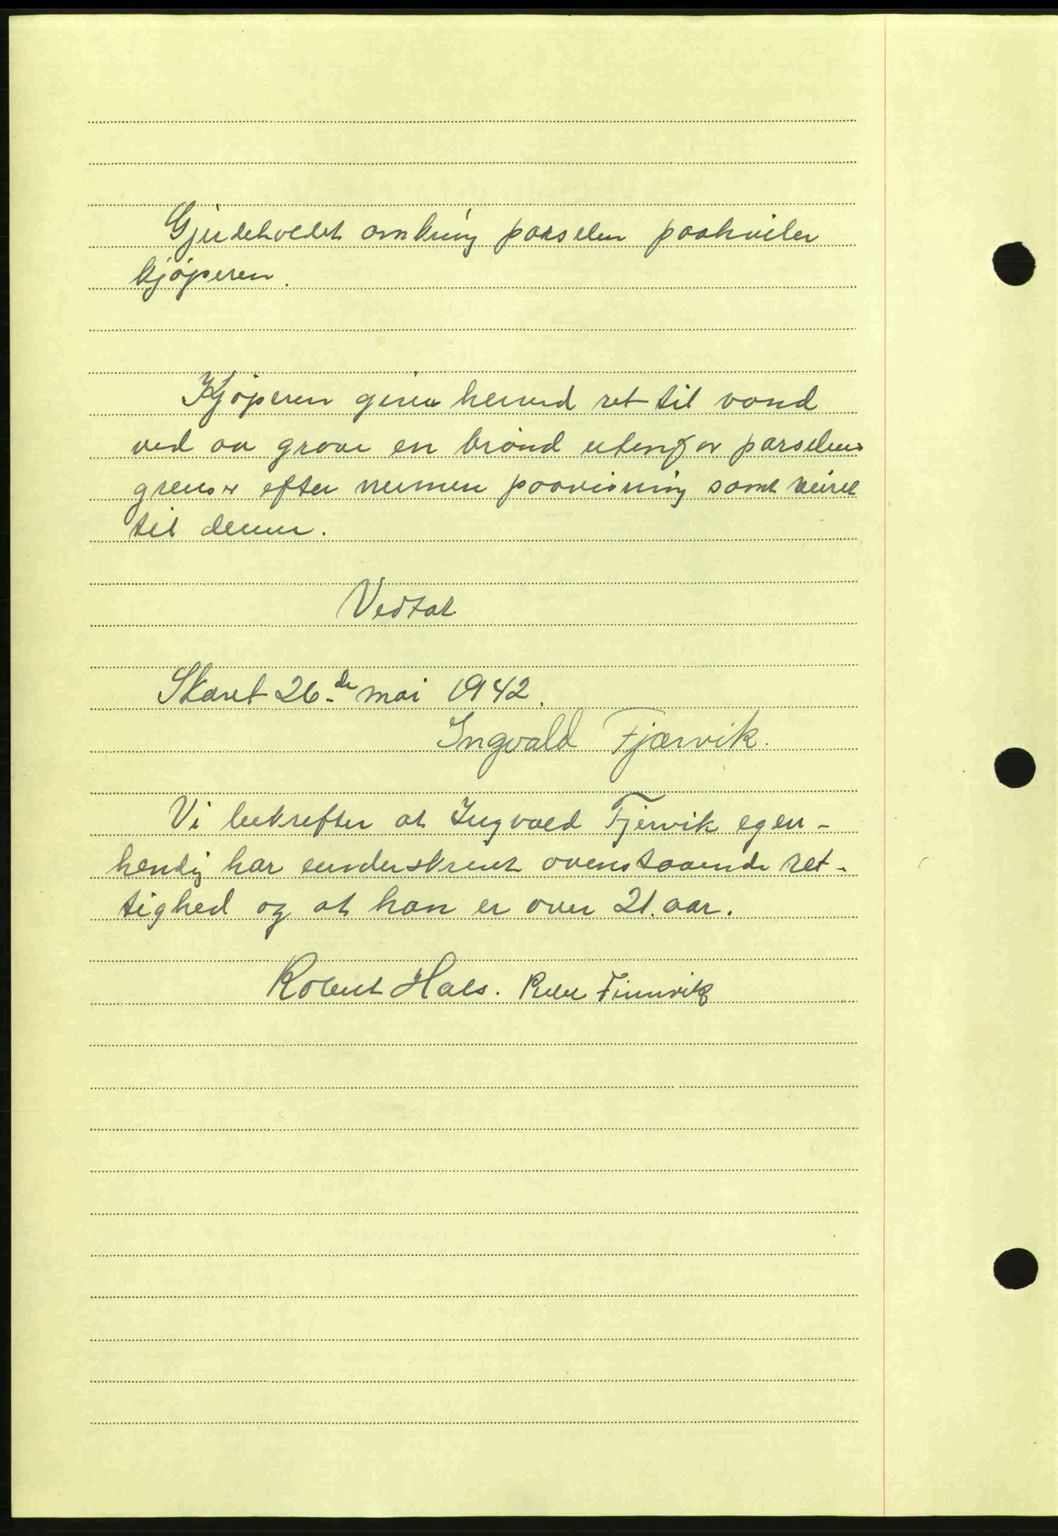 Gjerdeholdet omkring parselen paahviler
kjøperen.
Kjøperen gives herved ret til vand
ved aa grave en brønd utenfor parselens
grenser efter nermere paavisning samt veiret
til denne.
Vedtat
Skaret 26.de mai 1942.
Ingvald Fjærvik.
Vi bekrefter at Ingvald Fjervik egen-
hendig har underskrevet ovenstaaende ret-
tighed og at han er over 21. aar.
Robert Hals. Finnvik